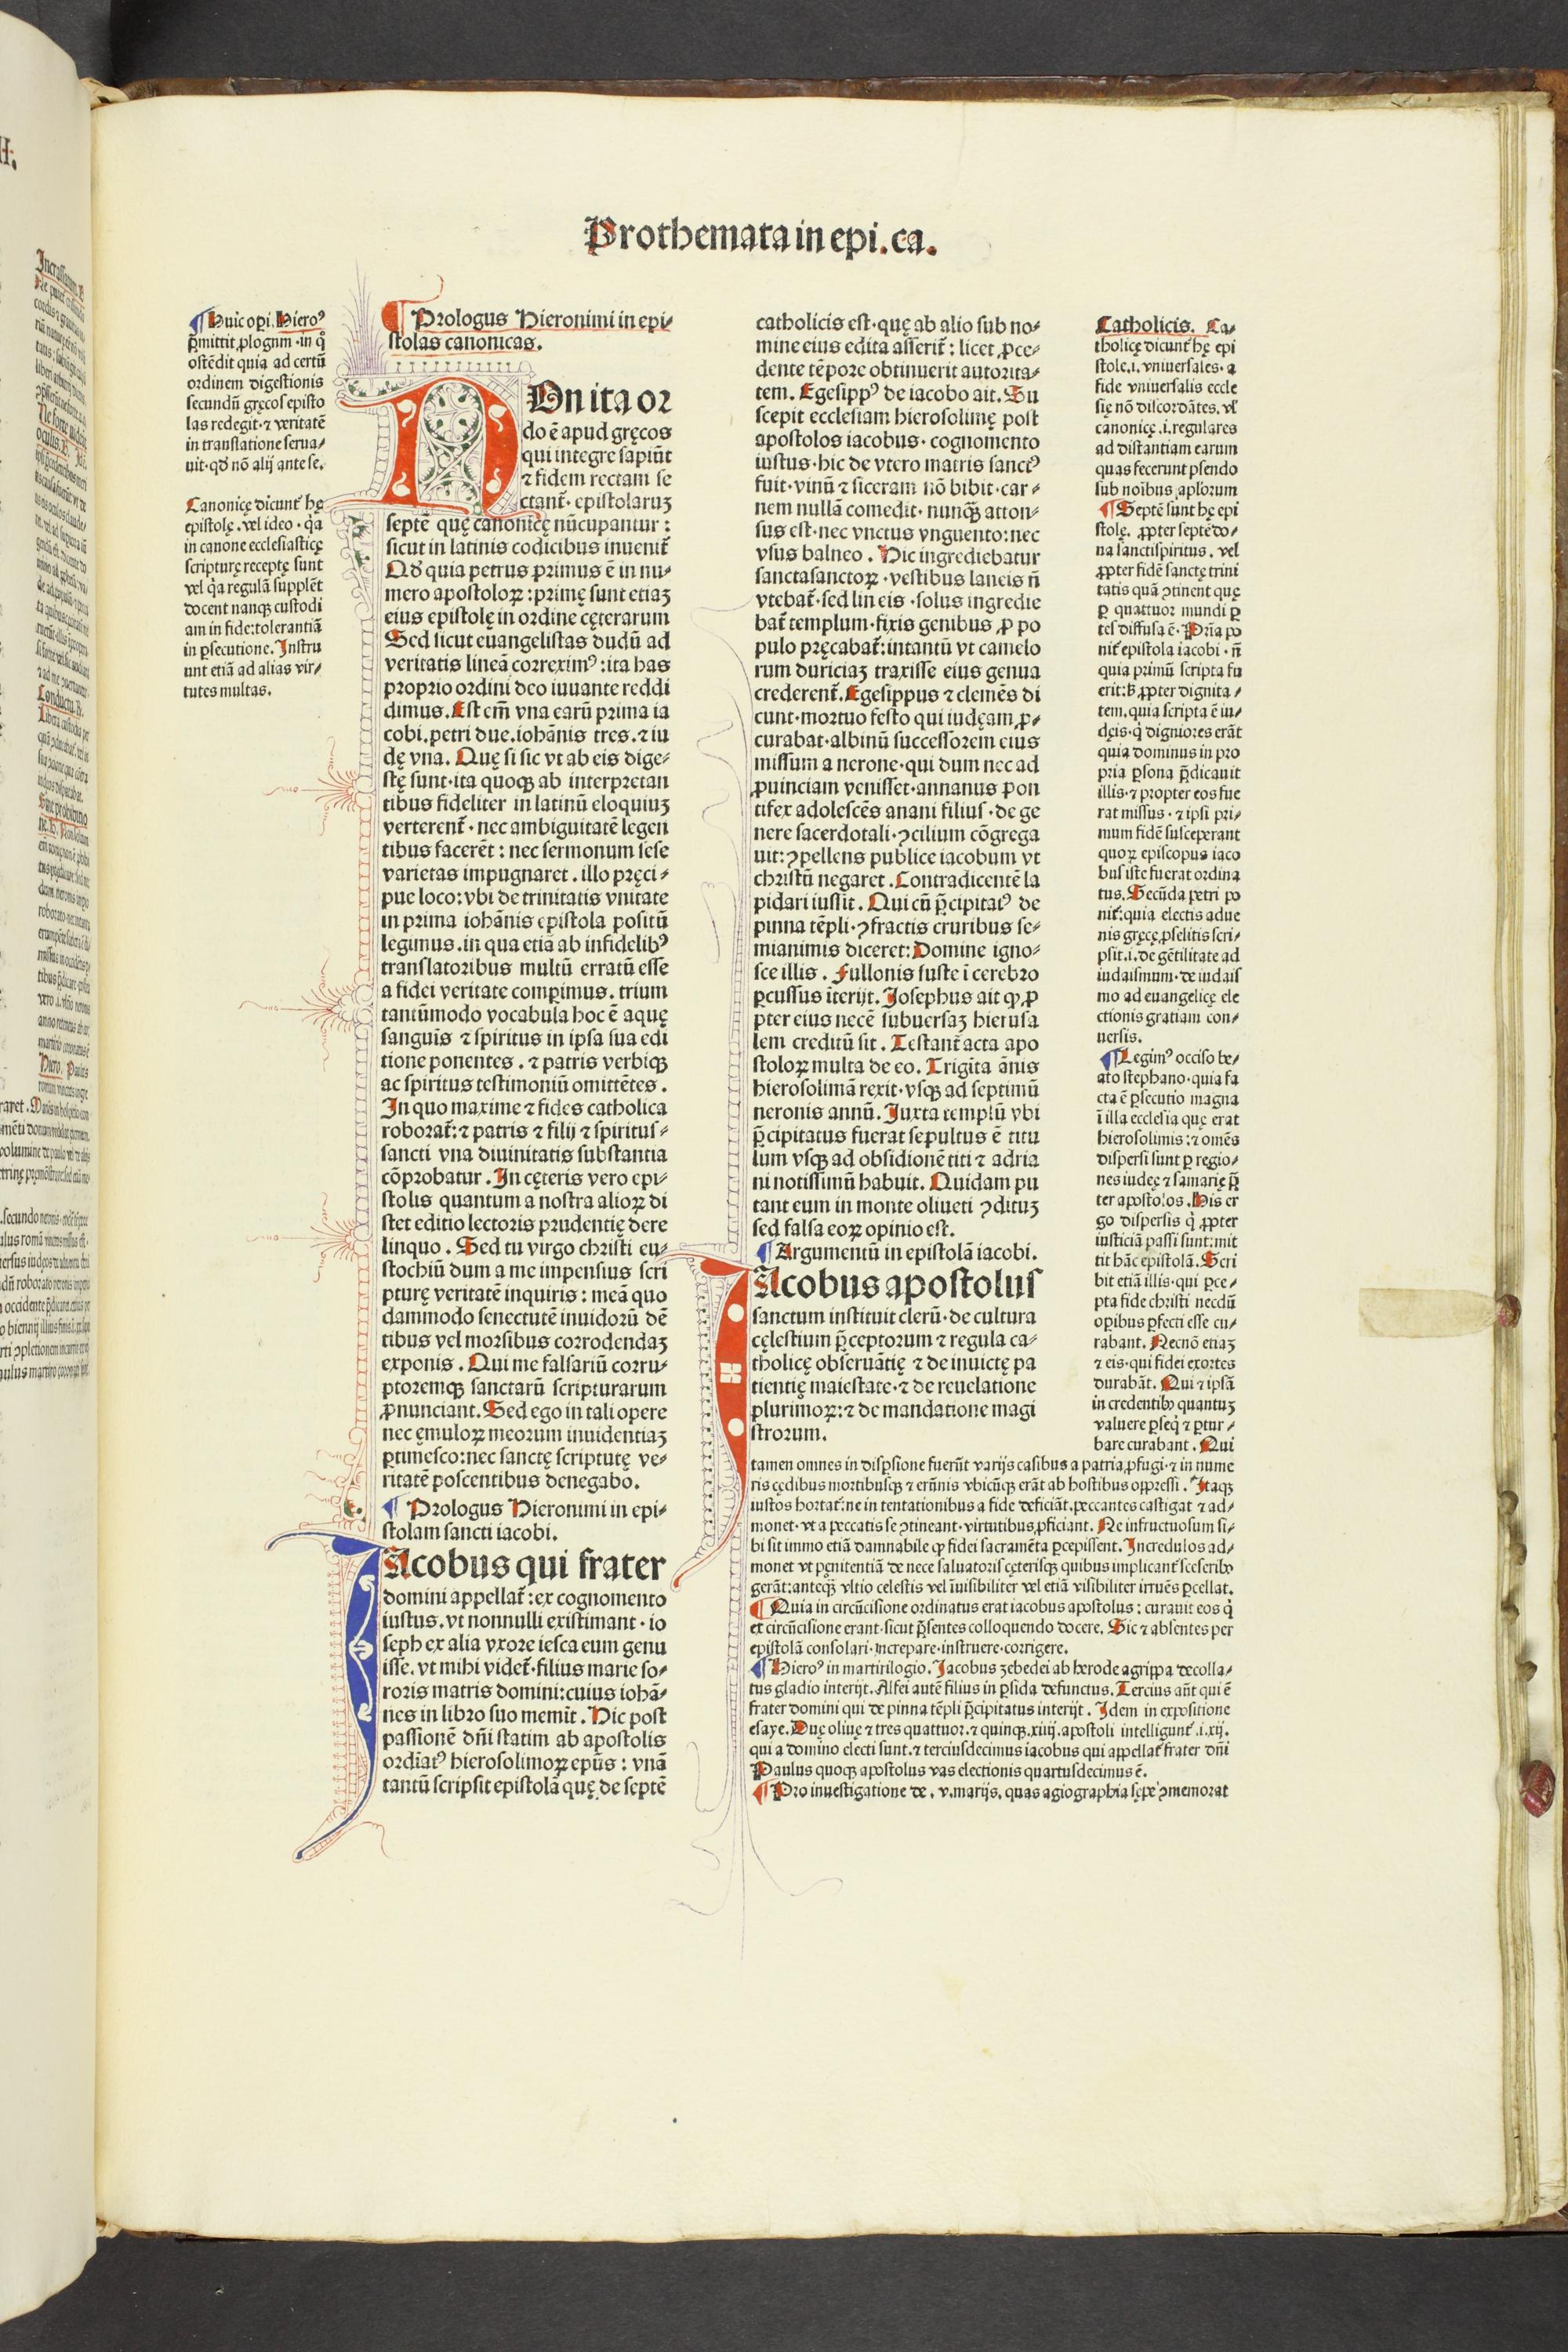 Prothemata in epi.ca.
¶ Huic opi. Hieroꝰ
p̄mittit ꝓlogum·in q̊
oſtēdit quia ad certū
ordinem digeſtionis
ſecundū gręcoſ epiſto
las redegit·⁊ veritatē
in tranſlatione ſerua⸗
uit·qd̓ nō alij ante ſe.
Canonicę dicunt̄ hę
epiſtolę.vel ideo·qa
in canone eccleſiaſticę
ſcripturę receptę ſunt
vel qa regulā ſupplēt
docent nanqꝫ cuſtodi
am in fide:tolerantiā
in ꝑſecutione.Inſtru
unt etiā ad alias vir⸗
tutes multas.
¶ Prologus Hieronimi in epi⸗
ſtolas canonicas.
NOn ita or
do ē apud gręcos
qui integre ſapiūt
⁊ fidem rectam ſe
ctant̄·epiſtolaruꝫ
ſeptē quę canonicę nūcupantur:
ſicut in latinis codicibus inuenit̄
Qd̓ quia petrus primus ē in nu⸗
mero apoſtoloꝝ:primę ſunt etiaꝫ
eius epiſtolę in ordine cęterarum
Sed ſicut euangeliſtas dudū ad
veritatis lineā correximꝰ:ita has
proprio ordini deo iuuante reddi
dimus.Eſt em̄ vna earū prima ia
cobi.petri due.iohānis tres.⁊ iu
dę vna. Quę ſi ſic vt ab eis dige⸗
ſtę ſunt·ita quoqꝫ ab interpretan
tibus fideliter in latinū eloquiuꝫ
verterent̄·nec ambiguitatē legen
tibus facerēt:nec ſermonum ſeſe
varietas impugnaret.illo pręci⸗
pue loco:vbi de trinitatis vnitate
in prima iohānis epiſtola poſitū
legimus.in qua etiā ab infidelibꝰ
tranſlatoribus multū erratū eſſe
a fidei veritate comꝑimus.trium
tantūmodo vocabula hoc ē aquę
ſanguis ⁊ ſpiritus in ipſa ſua edi
tione ponentes.⁊ patris verbiqꝫ
ac ſpiritus teſtimoniū omittētes.
In quo maxime ⁊ fides catholica
roborat̄:⁊ patris ⁊ filij ⁊ ſpirituſ⸗
ſancti vna diuinitatis ſubſtantia
cōprobatur.In cęteris vero epi⸗
ſtolis quantum a noſtra alioꝝ di
ſtet editio lectoris prudentię dere
linquo. Sed tu virgo chriſti eu⸗
ſtochiū dum a me impenſius ſcri
pturę veritatē inquiris:meā quo
dammodo ſenectutē inuidorū dē
tibus vel morſibus corrodendaꝫ
exponis. Qui me falſariū corru⸗
ptoremqꝫ ſanctarū ſcripturarum
ꝓnunciant.Sed ego in tali opere
nec ęmuloꝝ meorum inuidentiaꝫ
ꝑtimeſco:nec ſanctę ſcripturę ve⸗
ritatē poſcentibus denegabo.
¶ Prologus Hieronimi in epi⸗
ſtolam ſancti iacobi.
IAcobus qui frater
domini appellat̄:ex cognomento
iuſtus.vt nonnulli exiſtimant·io
ſeph ex alia vxore ieſca eum genu
iſſe.vt mihi videt̄·filius marie ſo⸗
roris matris domini:cuius iohā⸗
nes in libro ſuo memīt.Hic poſt
paſſionē dn̄i ſtatim ab apoſtolis
ordīatꝰ hieroſolimoꝝ epūs:vnā
tantū ſcripſit epiſtolā quę de ſeptē
catholicis eſt·quę ab alio ſub no⸗
mine eius edita aſſerit̄:licet ꝓce⸗
dente tēpore obtinuerit autorita⸗
tem. Egeſippꝰ de iacobo ait.Su
ſcepit eccleſiam hieroſolimę poſt
apoſtolos iacobus·cognomento
iuſtus·hic de vtero matris ſanctꝰ
fuit·vinū ⁊ ſiceram nō bibit·car⸗
nem nullā comedit·nunqꝫ atton⸗
ſus eſt·nec vnctus vnguento:nec
vſus balneo. Hic ingrediebatur
ſanctaſanctoꝝ·veſtibus laneis n̄
vtebat̄·ſed lineis·ſolus ingredie
bat̄ templum·fixis genibus ꝓ po
pulo pręcabat̄:intantū vt camelo
rum duriciaꝫ traxiſſe eius genua
crederent̄.Egeſippus ⁊ clemēs di
cunt·mortuo feſto qui iudęam ꝓ⸗
curabat·albinū ſucceſſorem eius
miſſum a nerone·qui dum nec ad
ꝓuinciam veniſſet·annanus pon
tifex adoleſcēs anani filiuſ·de ge
nere ſacerdotali·ꝯcilium cōgrega
uit:ꝯpellens publice iacobum vt
chriſtū negaret.Contradicentē la
pidari iuſſit. Qui cū p̄cipitatꝰ de
pinna tēpli·ꝯfractis cruribus ſe⸗
mianimis diceret:Domine igno⸗
ſce illis. Fullonis fuſte ī cerebro
ꝑcuſſus īterijt. Joſephus ait ꝙ ꝓ
pter eius necē ſubuerſaꝫ hieruſa
lem creditū ſit. Teſtant̄ acta apo
ſtoloꝝ multa de eo.Trigīta ānis
hieroſolimā rexit·vſqꝫ ad ſeptimū
neronis annū. Juxta templū vbi
p̄cipitatus fuerat ſepultus ē titu
lum vſqꝫ ad obſidionē titi ⁊ adria
ni notiſſimū habuit. Quidam pu
tant eum in monte oliueti ꝯdituꝫ
ſed falſa eoꝝ opinio eſt.
¶ Argumentū in epiſtolā iacobi.
IAcobus apoſtoluſ
ſanctum inſtituit clerū·de cultura
cęleſtium p̄ceptorum ⁊ regula ca⸗
tholicę obſeruātię ⁊ de inuictę pa
tientię maieſtate·⁊ de reuelatione
plurimoꝝ:⁊ de mandatione magi
ſtrorum.
Catholicis. Ca⸗
tholicę dicunt̄ hę epi
ſtole.i.vniuerſales·a
fide vniuerſalis eccle
ſię nō diſcordātes.vl̓
canonicę.i.regulares
ad diſtantiam earum
quas fecerunt pſendo
ſub noībus apl̓orum
¶ Septē ſunt hę epi
ſtolę. ꝓpter ſeptē do⸗
na ſanctiſpiritus. vel
ꝓpter fidē ſanctę trini
tatis quā ꝯtinent quę
ꝑ quattuor mundi ꝑ
tes diffuſa ē·Prīa po
nit̄ epiſtola iacobi·n̄
quia primū ſcripta fu
erit:ſꝫ ꝓpter dignita⸗
tem.quia ſcripta ē iu⸗
dęis·q̇ digniores erāt
quia dominus in pro
pria ꝑſona p̄dicauit
illis·⁊ propter eos fue
rat miſſus·⁊ ipſi pri⸗
mum fidē ſuſceperant
quoꝝ epiſcopus iaco
bus iſte fuerat ordina
tus.Secūda petri po
nit̄:quia electis adue
nis gręcę ꝓſelitis ſcri⸗
pſit.i.de gētilitate ad
iudaiſmum·de iudaiſ
mo ad euangelicę ele
ctionis gratiam con⸗
uerſis.
¶ Legimꝰ occiſo be⸗
ato ſtephano·quia fa
cta ē ꝑſecutio magna
ī illa eccleſia quę erat
hieroſolimis:⁊ omēs
diſperſi ſunt ꝑ regio⸗
nes iudeę ⁊ ſamarię p̄
ter apoſtolos.His er
go diſperſis q̇ ꝓpter
iuſticiā paſſi ſunt:mit
tit hāc epiſtolā. Scri
bit etiā illis·qui ꝑce⸗
pta fide chriſti necdū
oꝑibus ꝑfecti eſſe cu⸗
rabant. Necnō etiaꝫ
⁊ eis·qui fidei exortes
durabāt. Qui ⁊ ipſā
in credentibꝰ quantuꝫ
valuere ꝑſeq̇ ⁊ ꝑtur⸗
bare curabant. Qui
tamen omnes in diſꝑſione fuerūt varijs caſibus a patria ꝓfugi·⁊ in nume
ris cędibus mortibuſqꝫ ⁊ erūnis vbicūqꝫ erāt ab hoſtibus oppreſſi. Itaqꝫ
iuſtos hortat̄:ne in tentationibus a fide deficiāt.peccantes caſtigat ⁊ ad⸗
monet·vt a peccatis ſe ꝯtineant·virtutibus ꝓficiant. Ne infructuoſum ſi⸗
bi ſit immo etiā damnabile ꝙ fidei ſacramēta ꝑcepiſſent.Incredulos ad⸗
monet vt penitentiā de nece ſaluatoris cęteriſqꝫ quibus implicant̄ ſceleribꝰ
gerāt:anteqꝫ vltio celeſtis vel īuiſibiliter vel etiā viſibiliter irruēs ꝑcellat.
¶ Quia in circūciſione ordinatus erat iacobus apoſtolus:curauit eos q̇
ex circūciſione erant·ſicut p̄ſentes colloquendo docere. Sic ⁊ abſentes per
epiſtolā conſolari·increpare·inſtruere·corrigere.
¶ Hieroꝰ in martirilogio. Jacobus ꝫebedei ab herode agrippa decolla⸗
tus gladio interijt.Alfei autē filius in ꝑſida defunctus.Tercius aūt qui ē
frater domini qui de pinna tēpli p̄cipitatus interijt. Idem in expoſitione
eſaye. Duę oliuę ⁊ tres quattuor.⁊ quinqꝫ.xiiij.apoſtoli intelligunt̄.i.xij.
qui a domino electi ſunt.⁊ terciuſdecimus iacobus qui appellat̄ frater dn̄i
Paulus quoqꝫ apoſtolus vas electionis quartuſdecimus ē.
¶ Pro inueſtigatione de.v.marijs.quas agiographia ſępe ꝯmemorat